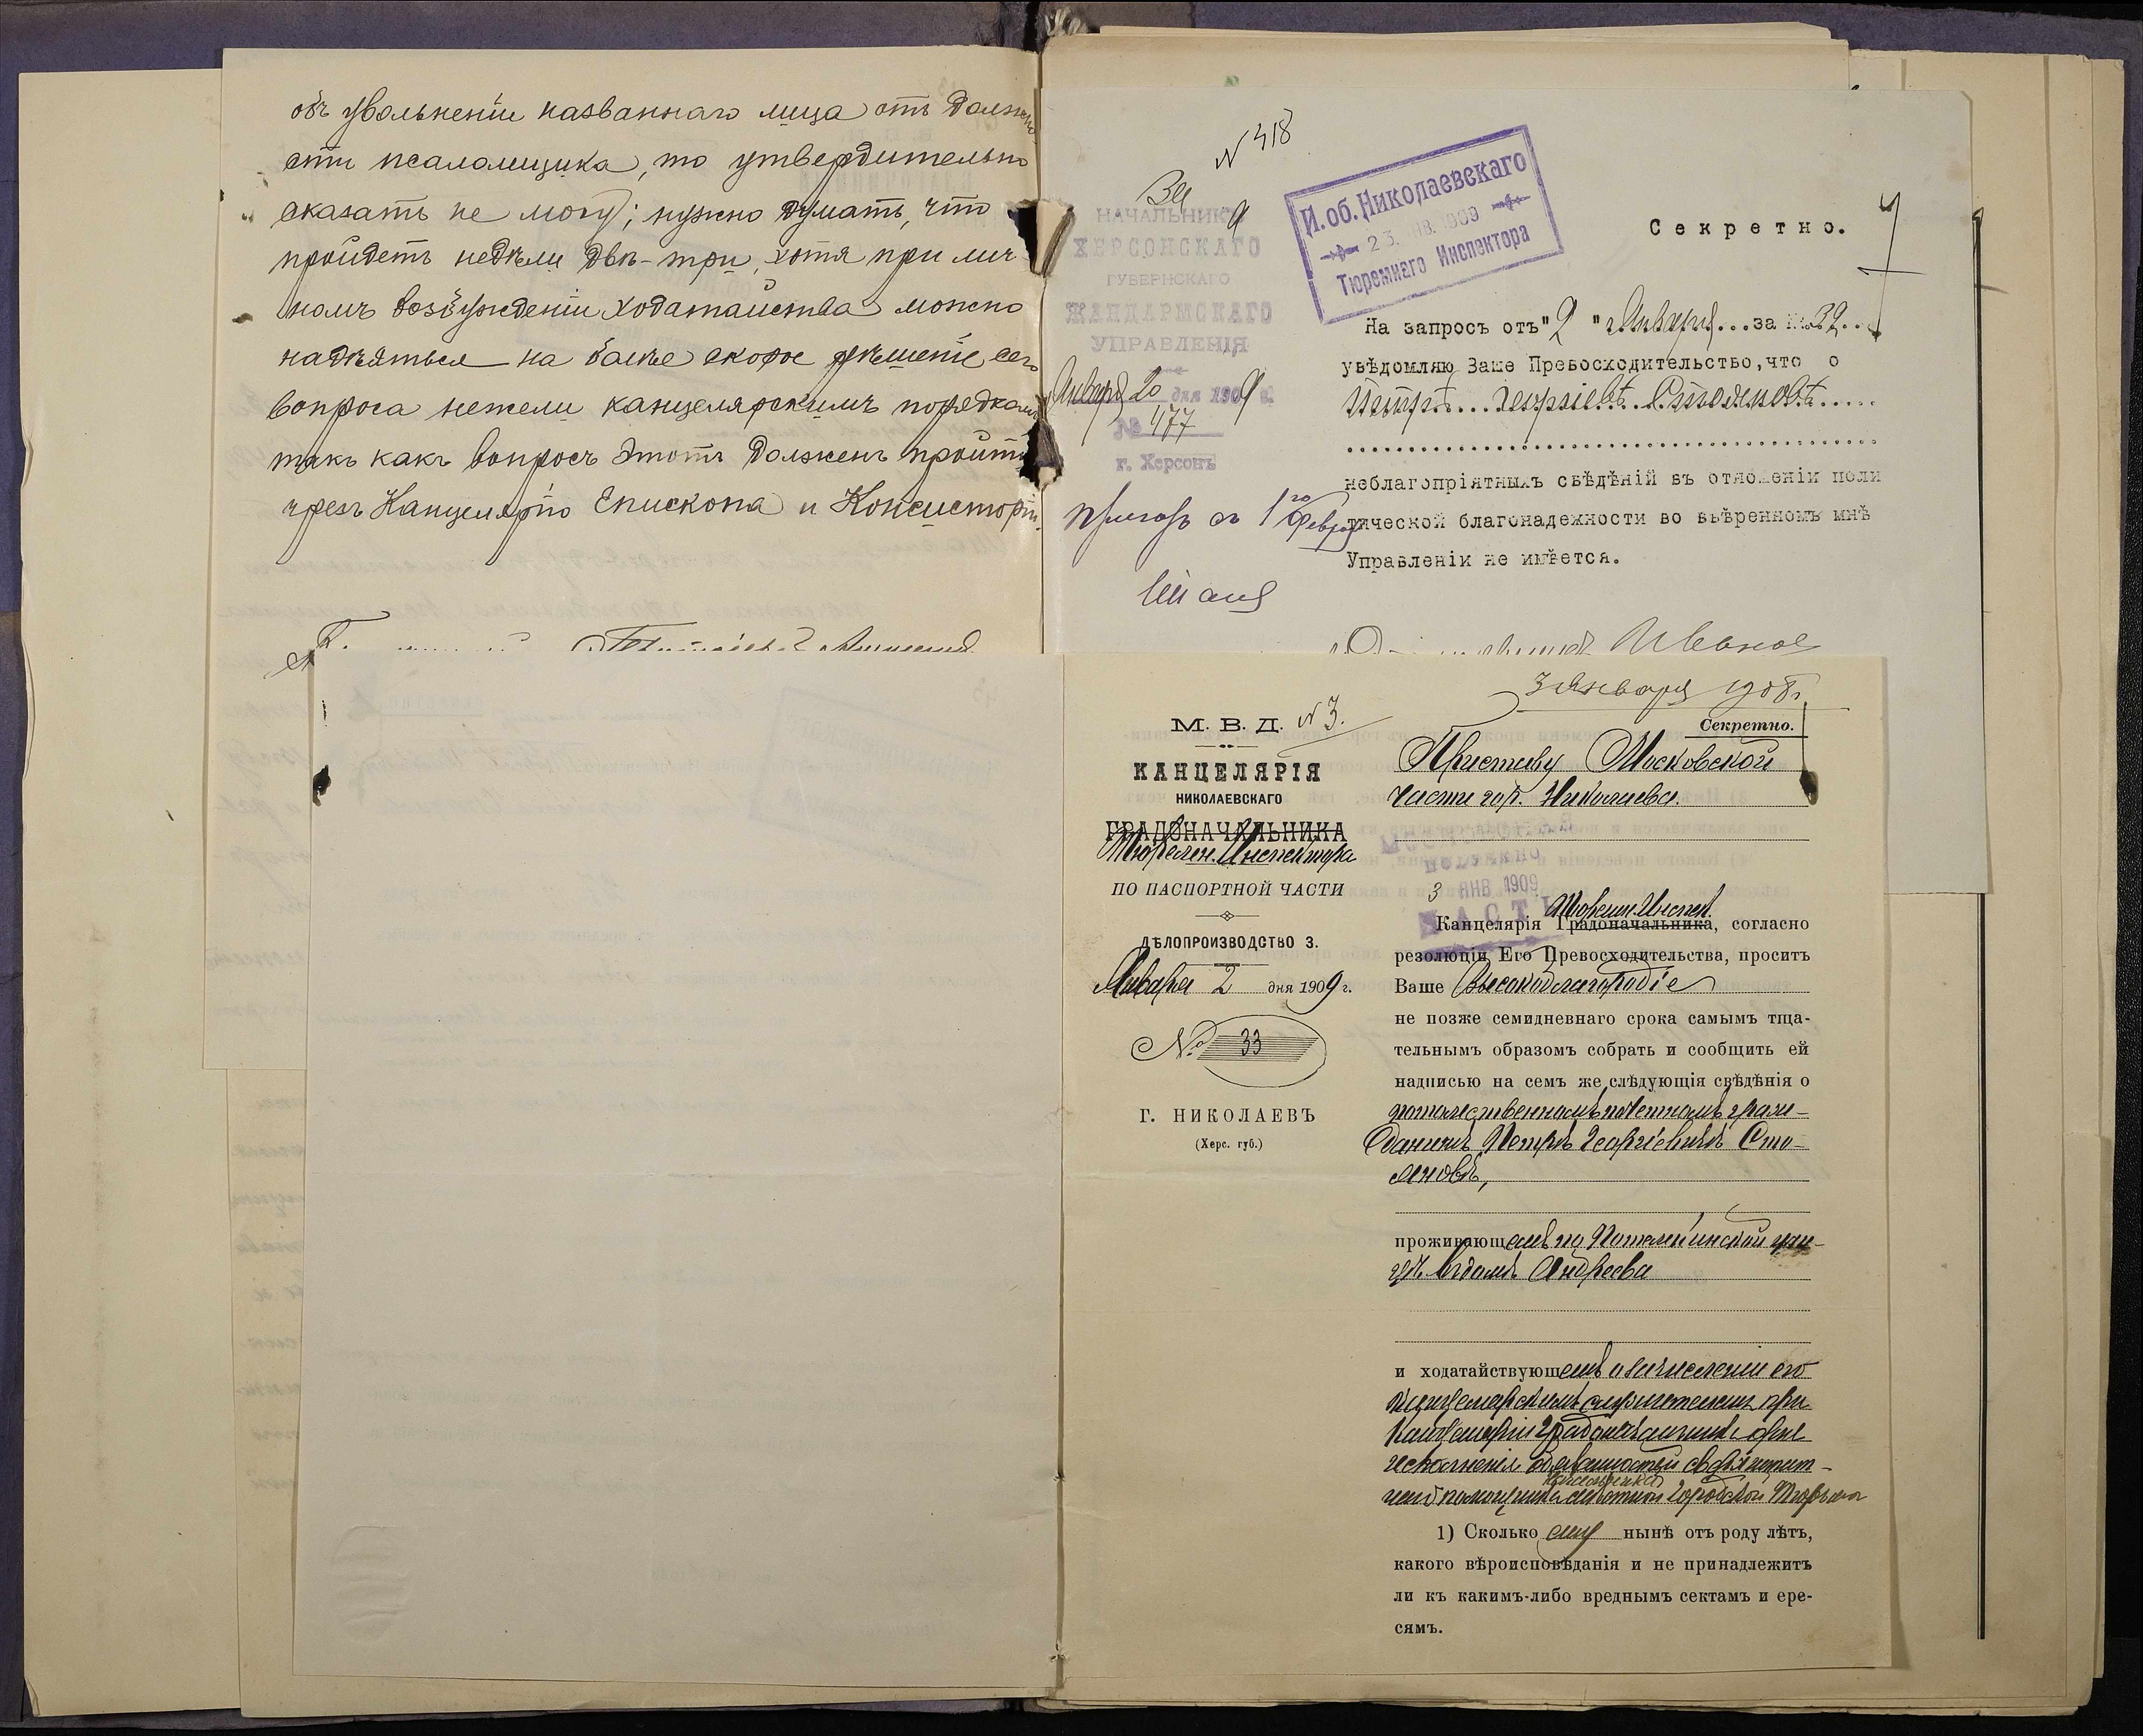 объ увольненіи названнаго лица отъ должно
сти псаломщика, то утвердительно
сказать не могу; нужно думать, что
пройдетъ недѣли двѣ-три, хотя при лич
номъ возбужденіи ходатайства можно
надѣяться на болѣе скорое рѣшеніе сего
вопроса нежели канцелярскимъ порядкомъ
такъ какъ вопросъ этотъ долженъ пройти
чрезъ Канцелярію Епископа и Консисторію.
N 318
НАЧАЛЬНИКЪ
ХЕРСОНСКАГО
ГУБЕРНСКАГО
ЖАНДАРМСКАГО
УПРАВЛЕНІЯ
Января 20 дня 1909 г.
№ 477
г. Херсонъ
И.об. Николаевскаго
23. ЯНВ. 1909
Тюремнаго Инспектора
Секретно.
На запросъ отъ "2" Января... за № 32...
увѣдомляю Ваше Превосходительство, что о
Петрѣ... Георгіевѣ. Стояновѣ.....
неблагопріятныхъ свѣдѣній въ отношеніи поли
тической благонадежности во ввѣренномъ мнѣ
Управленіи не имѣется.
съ 1го Февраля
Иванов
М. В. Д. N 3.
КАНЦЕЛЯРІЯ
НИКОЛАЕВСКАГО
ГРАДОНАЧАЛЬНИКА
Тюремн. Инспектора
ПО ПАСПОРТНОЙ ЧАСТИ
ДѢЛОПРОИЗВОДСТВО 3.
Января 2 дня 1909 г.
№ 33
Г. НИКОЛАЕВЪ
(Херс. губ.)
3 Января 1908 г.
Секретно.
Приставу Московской
части гор. Николаева.
ПОЛУЧЕНО
3 ЯНВ 1909
ЧАСТИ
Тюремн. Инспек.
Канцелярія Градоначальника, согласно
резолюціи Его Превосходительства, проситъ
Ваше Высокоблагородіе
не позже семидневнаго срока самымъ тща-
тельнымъ образомъ собрать и сообщить ей
надписью на семъ же слѣдующія свѣдѣнія о
потомственномъ почетномъ граж-
данинѣ Петрѣ Георгіевичѣ Сто-
яновѣ,
проживающемъ по Потемкинской ули-
цѣ въ домѣ Андреева
и ходатайствующемъ о зачисленіи его
канцелярскимъ служителемъ при
Канцеляріи Градоначальника для
исполненія обязанностей
помощника городской Тюрьмы
1) Сколько ему нынѣ отъ роду лѣтъ,
какого вѣроисповѣданія и не принадлежитъ
ли къ какимъ-либо вреднымъ сектамъ и ере-
сямъ.